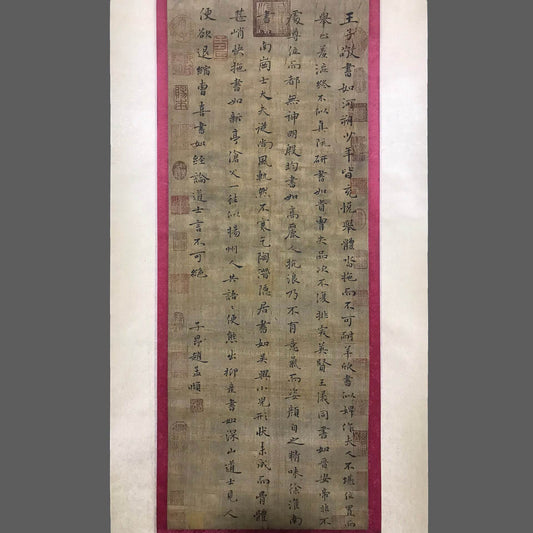 王子敬書如河朔少年皆充悅舉體沓拖而不可耐羊欣書似婢作夫人不堪位置而
舉止羞澁終不似真阮研書如貴胄失品次不復排突英賢王儀同書如晉安帝非不
處尊位而都無神明殷均書如高麗人抗浪乃不有意氣而姿顏自乏精味徐淮南
書如南岡士大夫徒尚風軌然不寒乞陶潛隱居書如吳興小兒形狀未成而骨體
甚峭快施書如新亭傖父一往似揚州人共語語便態出柳產書如深山道士見人
便欲退縮曹喜書如經論道士言不可絕
子昂趙孟頫